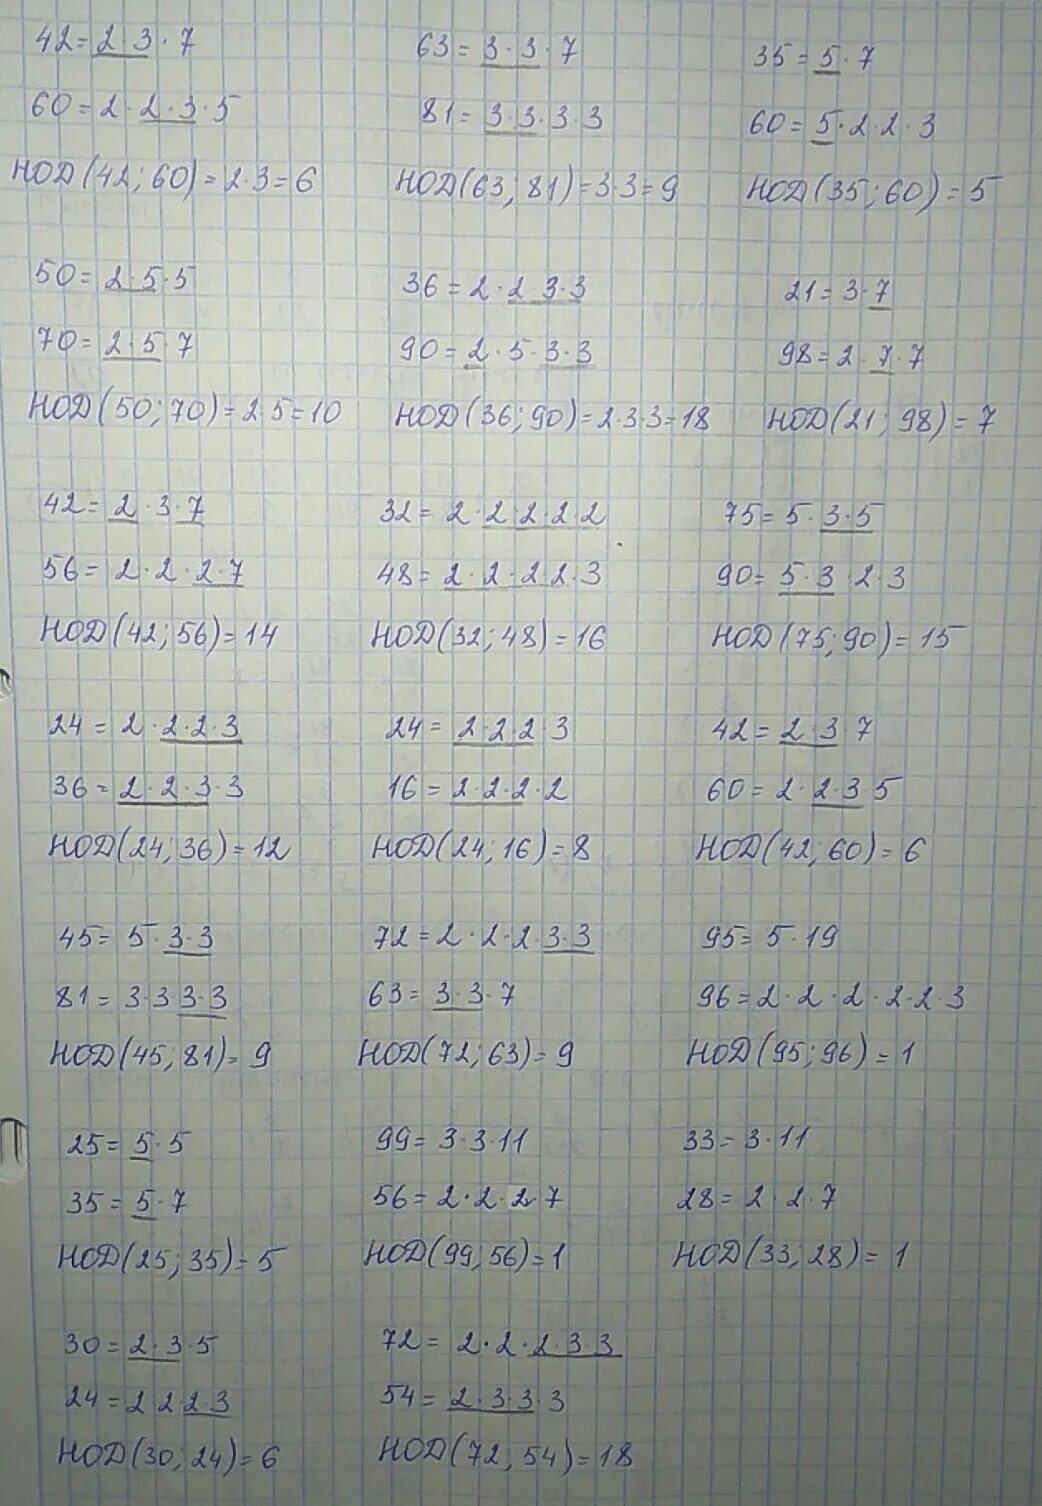 42 = 2·3·7
60 = 2·2·3·5
НОД(42; 60) = 2·3 = 6
63 = 3·3·7
81 = 3·3·3·3
НОД(63; 81) = 3·3 = 9
35 = 5·7
60 = 5·2·2·3
НОД(35; 60) = 5
50 = 2·5·5
70 = 2·5 7
НОД(50; 70) = 2 5 = 10
36 = 2·2 3·3
90 = 2·5·3·3
НОД(36; 90) = 2·3·3 = 18
21 = 3·7
98 = 2·7·7
НОД(21; 98) = 7
42 = 2·3·7
56 = 2·2·2·7
НОД(42; 56) = 14
32 = 2·2 2·2·2
48 = 2·2·2·2·3
НОД(32; 48) = 16
75 = 5·3·5
90 = 5·3·2·3
НОД(75; 90) = 15
24 = 2·2·2·3
36 = 2·2·3·3
НОД(24; 36) = 12
24 = 2·2·2·3
16 = 2·2·2·2
НОД(24; 16) = 8
42 = 2·3·7
60 = 2·2·3 5
НОД(42; 60) = 6
45 = 5·3·3
81 = 3·3·3·3
НОД(45; 81) = 9
72 = 2·2·2·3·3
63 = 3·3·7
НОД(72; 63) = 9
95 = 5·19
96 = 2·2·2·2·2·3
НОД(95; 96) = 1
25 = 5·5
35 = 5·7
НОД(25; 35) = 5
99 = 3·3·11
56 = 2·2·2·7
НОД(99; 56) = 1
33 = 3·11
28 = 2·2·7
НОД(33; 28) = 1
30 = 2·3·5
24 = 2 2 2·3
НОД(30; 24) = 6
72 = 2·2·2·3·3
54 = 2·3·3·3
НОД(72; 54) = 18